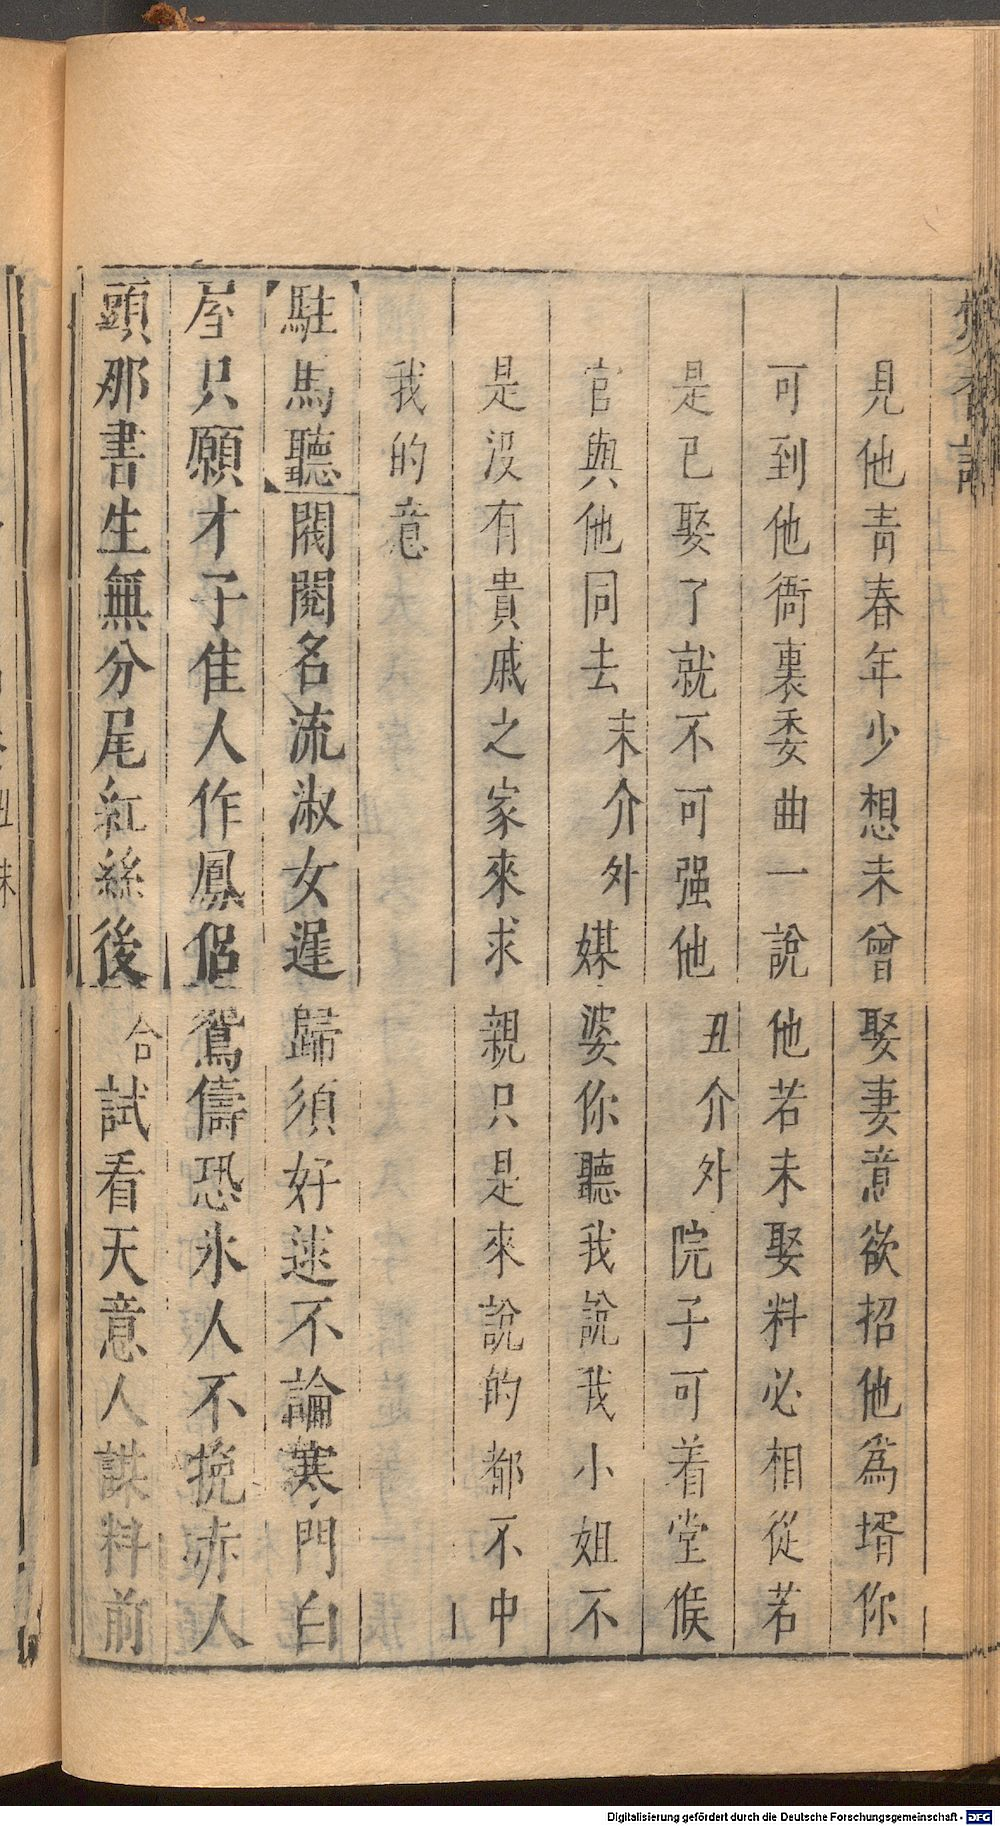 焚香記
見他青春年少想未曾娶妻意欲招他爲壻你
可到他衙裏委曲一說他若未娶料必相從若
是已娶了就不可强他丑介外院子可着堂候
官與他同去末介外媒婆你聽我說我小姐不
是沒有貴戚之家來求親只是來說的都不中
我的意
駐馬聽閥閱名流淑女遲歸須好逑不論寒門白
屋只願才子佳人作鳳侶鴛儔恐氷人不挽赤人
頭那書生無分尾紅絲後合試看天意人謀料前
Digitalisierung gefördert durch die Deutsche Forschungsgemeinschaft - DFG